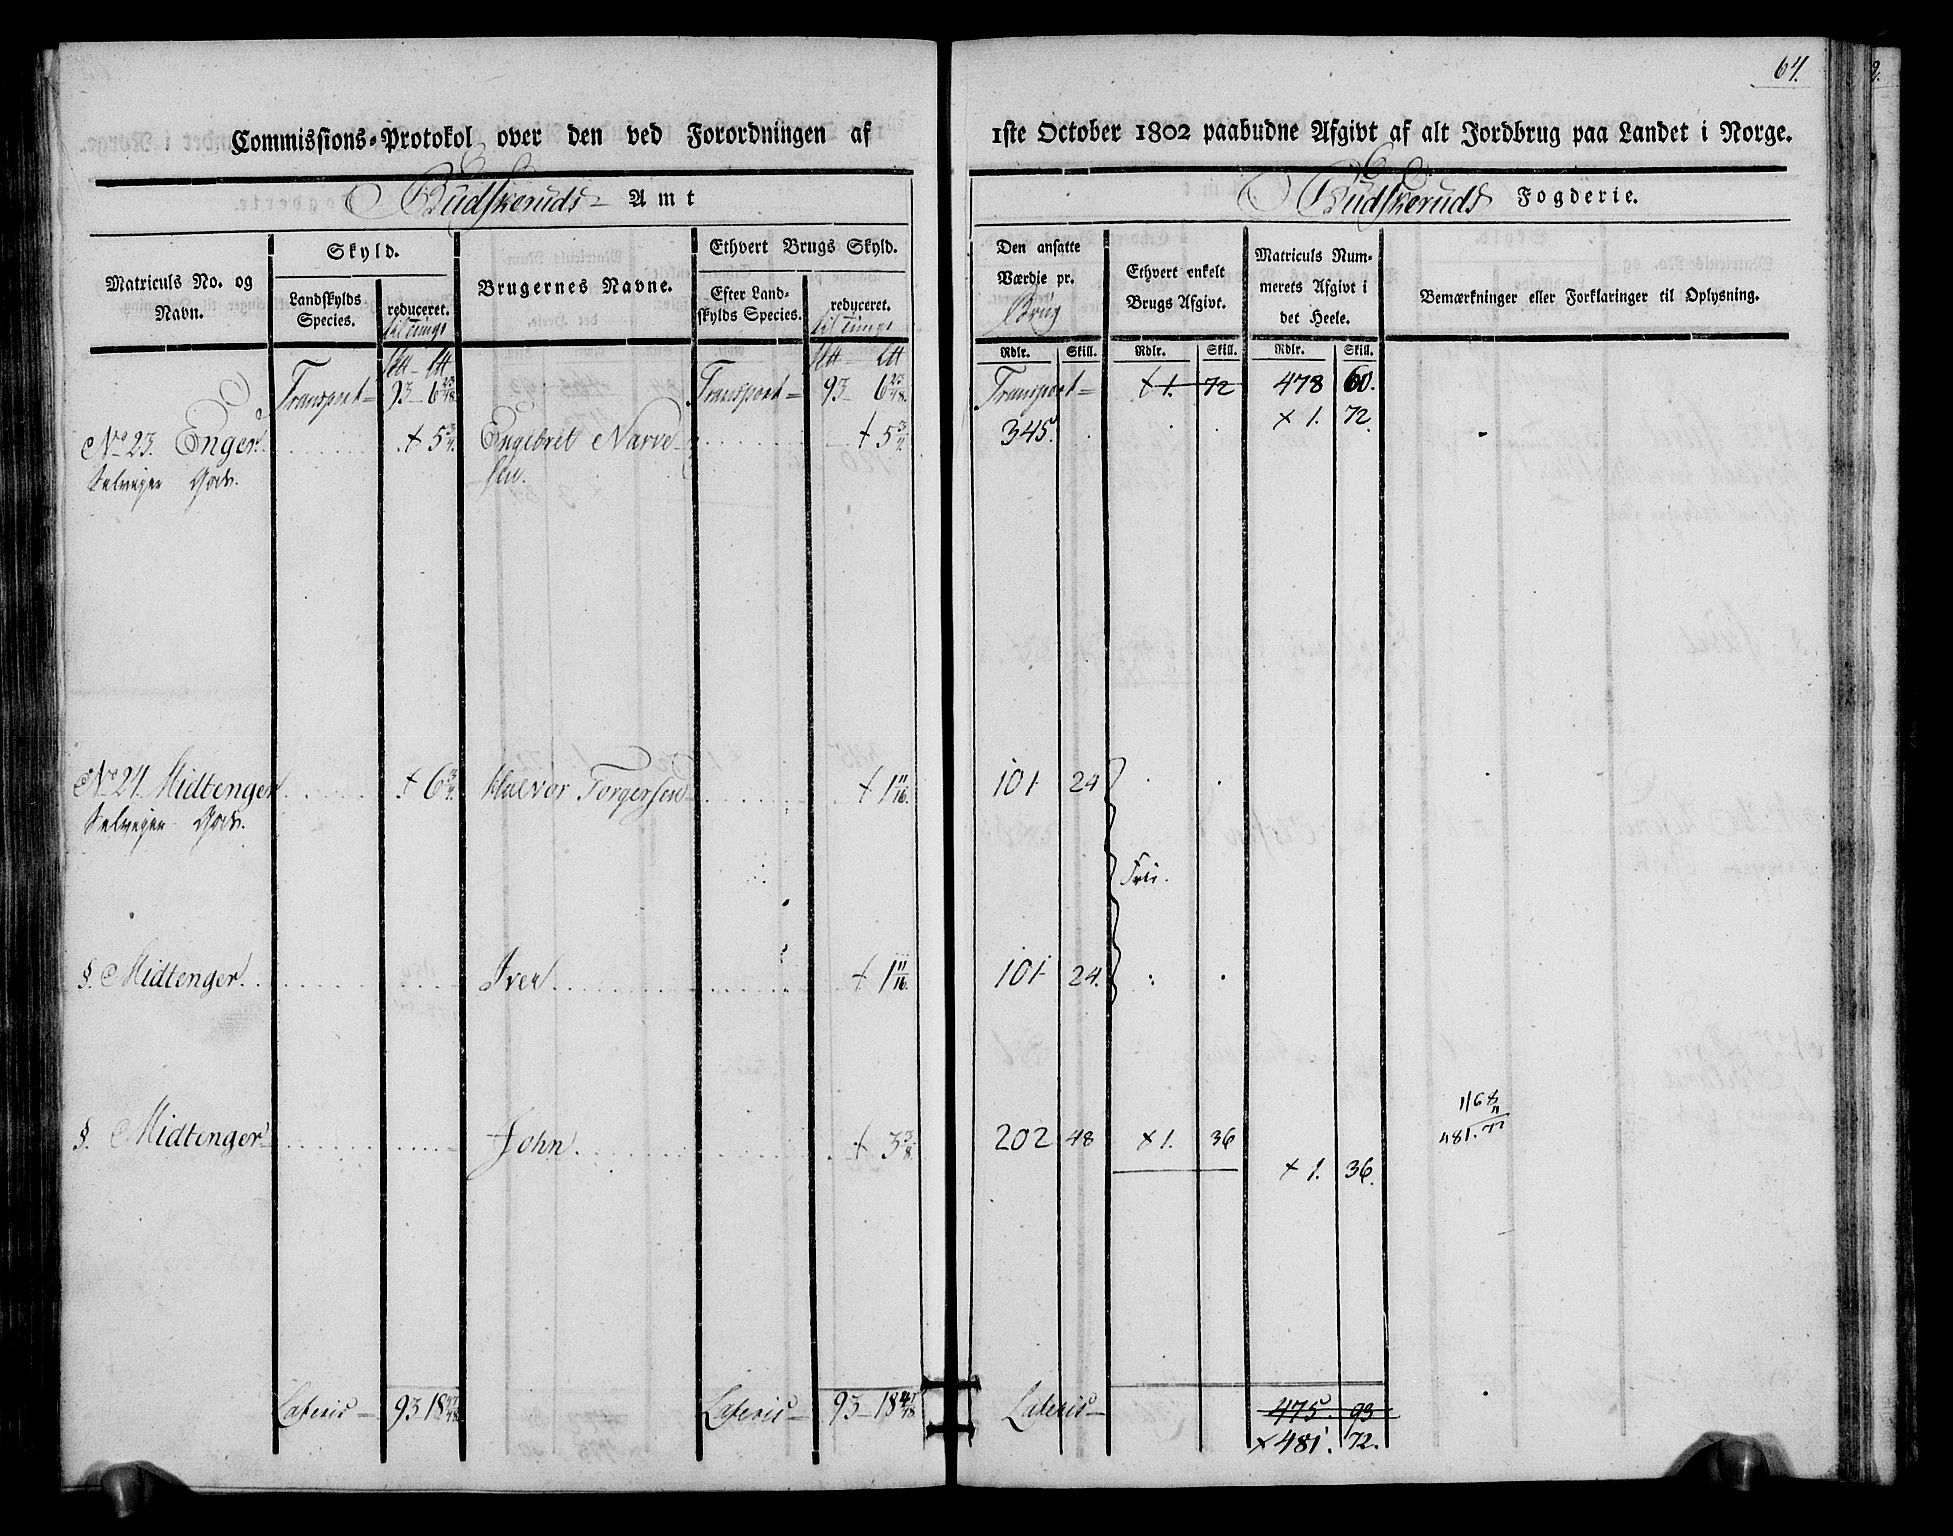 64.
Commissions-Protokol over den ved Forordningen af 1ste October 1802 paabudne Afgivt af alt Jordbrug paa Landet i Norge.
Budskeruds Amt
Budskeruds Fogderie.
Matriculs No. og Navn.
Skyld.
Landskylds Species.
reduceret.
Brugernes Navne.
Ethvert Brugs Skyld.
Efter Landskylds Species.
reduceret.
Den ansatte Værdie pr. Brug
Ethvert enkelt Brugs Afgivt.
Matriculs Nummerets Afgivt i det Heele.
Bemærkninger eller Forklaringer til Oplysning.
Rdlr. Skill. Rdlr. Skill. Rdlr. Skill.
Transport 93 6 23/48. Transport 93 6 23/48. Transport + 1. 72 478 60.
No 23. Enger + 5 3/4 Engebret Narve- + 5 3/4 345. × 1. 72.
Selveyer Gods. sen.
No 24. Midtenger + 6 3/4. Halvor Torgersen + 1 11/16. 101 24
Selveyer Gods.
Frie.
§. Midtenger. Iver. + 1 11/16. 101 24.
§. Midtenger John. + 3 3/8. 202 48 × 1. 36
× 1. 36.
481. 72
Lateris 93 18 47/48 Lateris 93 18 47/48 Lateris 475. 93
× 481. 72.